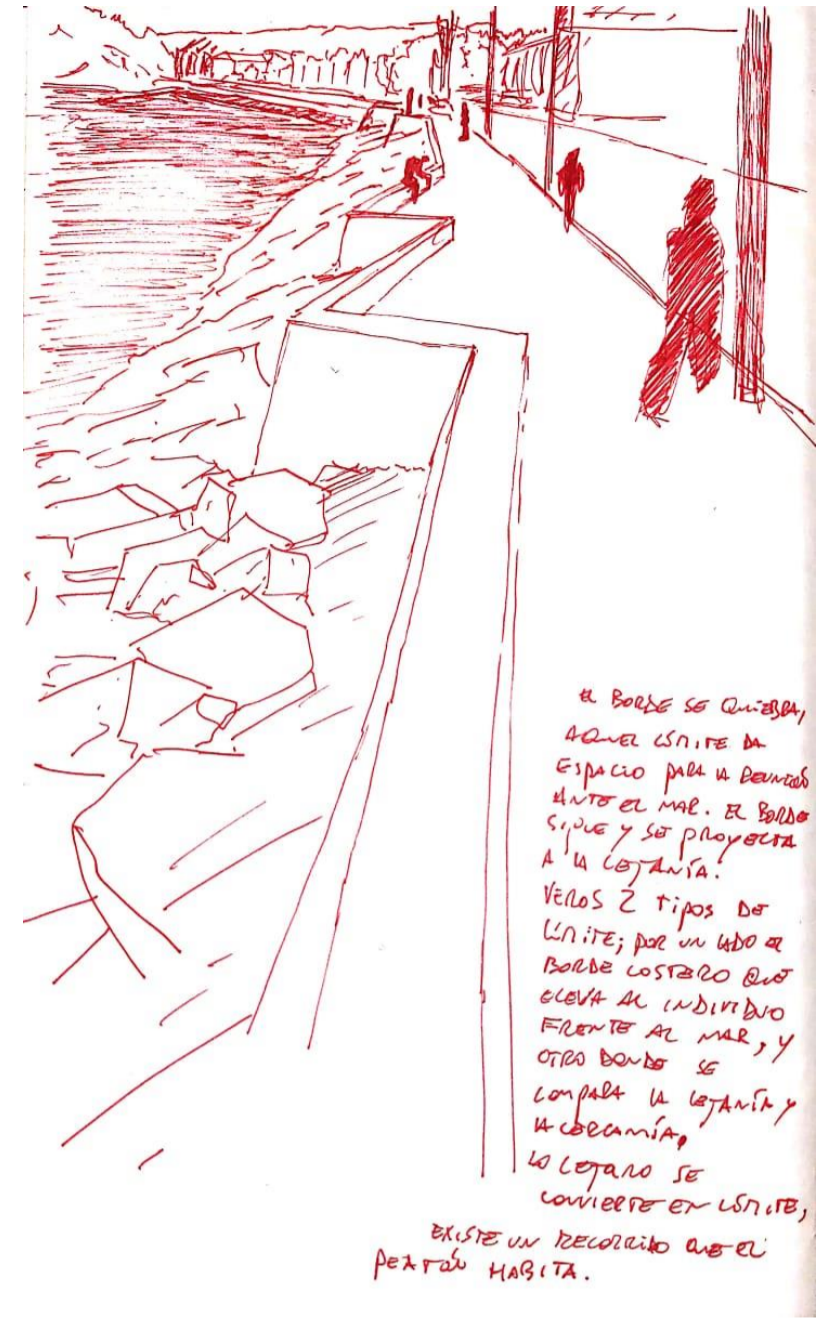 EL BORDE SE QUIEBRA,
AQUEL LÍMITE DA
ESPACIO PARA LA REUNIÓN
ANTE EL MAR. EL BORDE
SIGUE Y SE PROYECTA
A LA LEJANÍA.
VEMOS 2 TIPOS DE
LÍMITE; POR UN LADO EL
BORDE COSTERO QUE
ELEVA AL INDIVIDUO
FRENTE AL MAR, Y
OTRO DONDE SE
COMPARA LA LEJANÍA Y
LA CERCANÍA.
LO LEJANO SE
CONVIERTE EN LÍMITE,
EXISTE UN RECORRIDO QUE EL
PEATÓN HABITA.